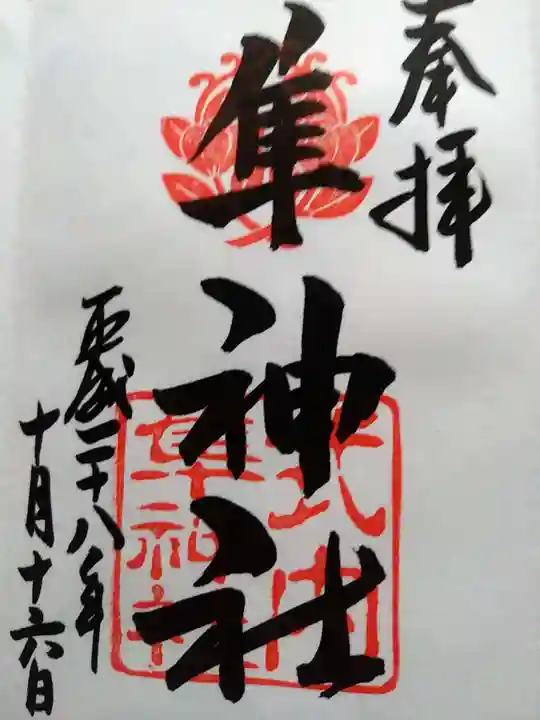 奉拝
隼神社
平成二十八年
十月十六日
式内
隼神社